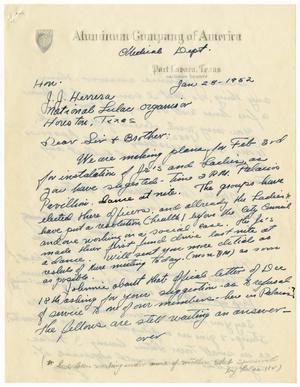 Aluminum Company of America
Medical Dept.
Port Lavaca, Texas
Jan 28 - 1952
Hon.
J.J. Herrera
National Lulac organisor
Houston, Texas
Dear Sir & Brother:
We are making plans for Feb 3rd
for installation of Jr's and Ladies, as
you have sugested - time 2 P.M. Palacios
Pavillion. Dance at nite. The groups have
elected there officers, and already the Ladies
have put a resolution (Health) before the City Council
and are working on a social case. The Jr's
made there first fund drive last nite at
a dance. Will send you more details as
results of there meeting today. (mon.) as soon
Johnnie about that oficial letter of Dec
18th asking for your suggestion as to refusal
of service to one of our members - here in Palacios?
The fellows are still waiting an answer -
over